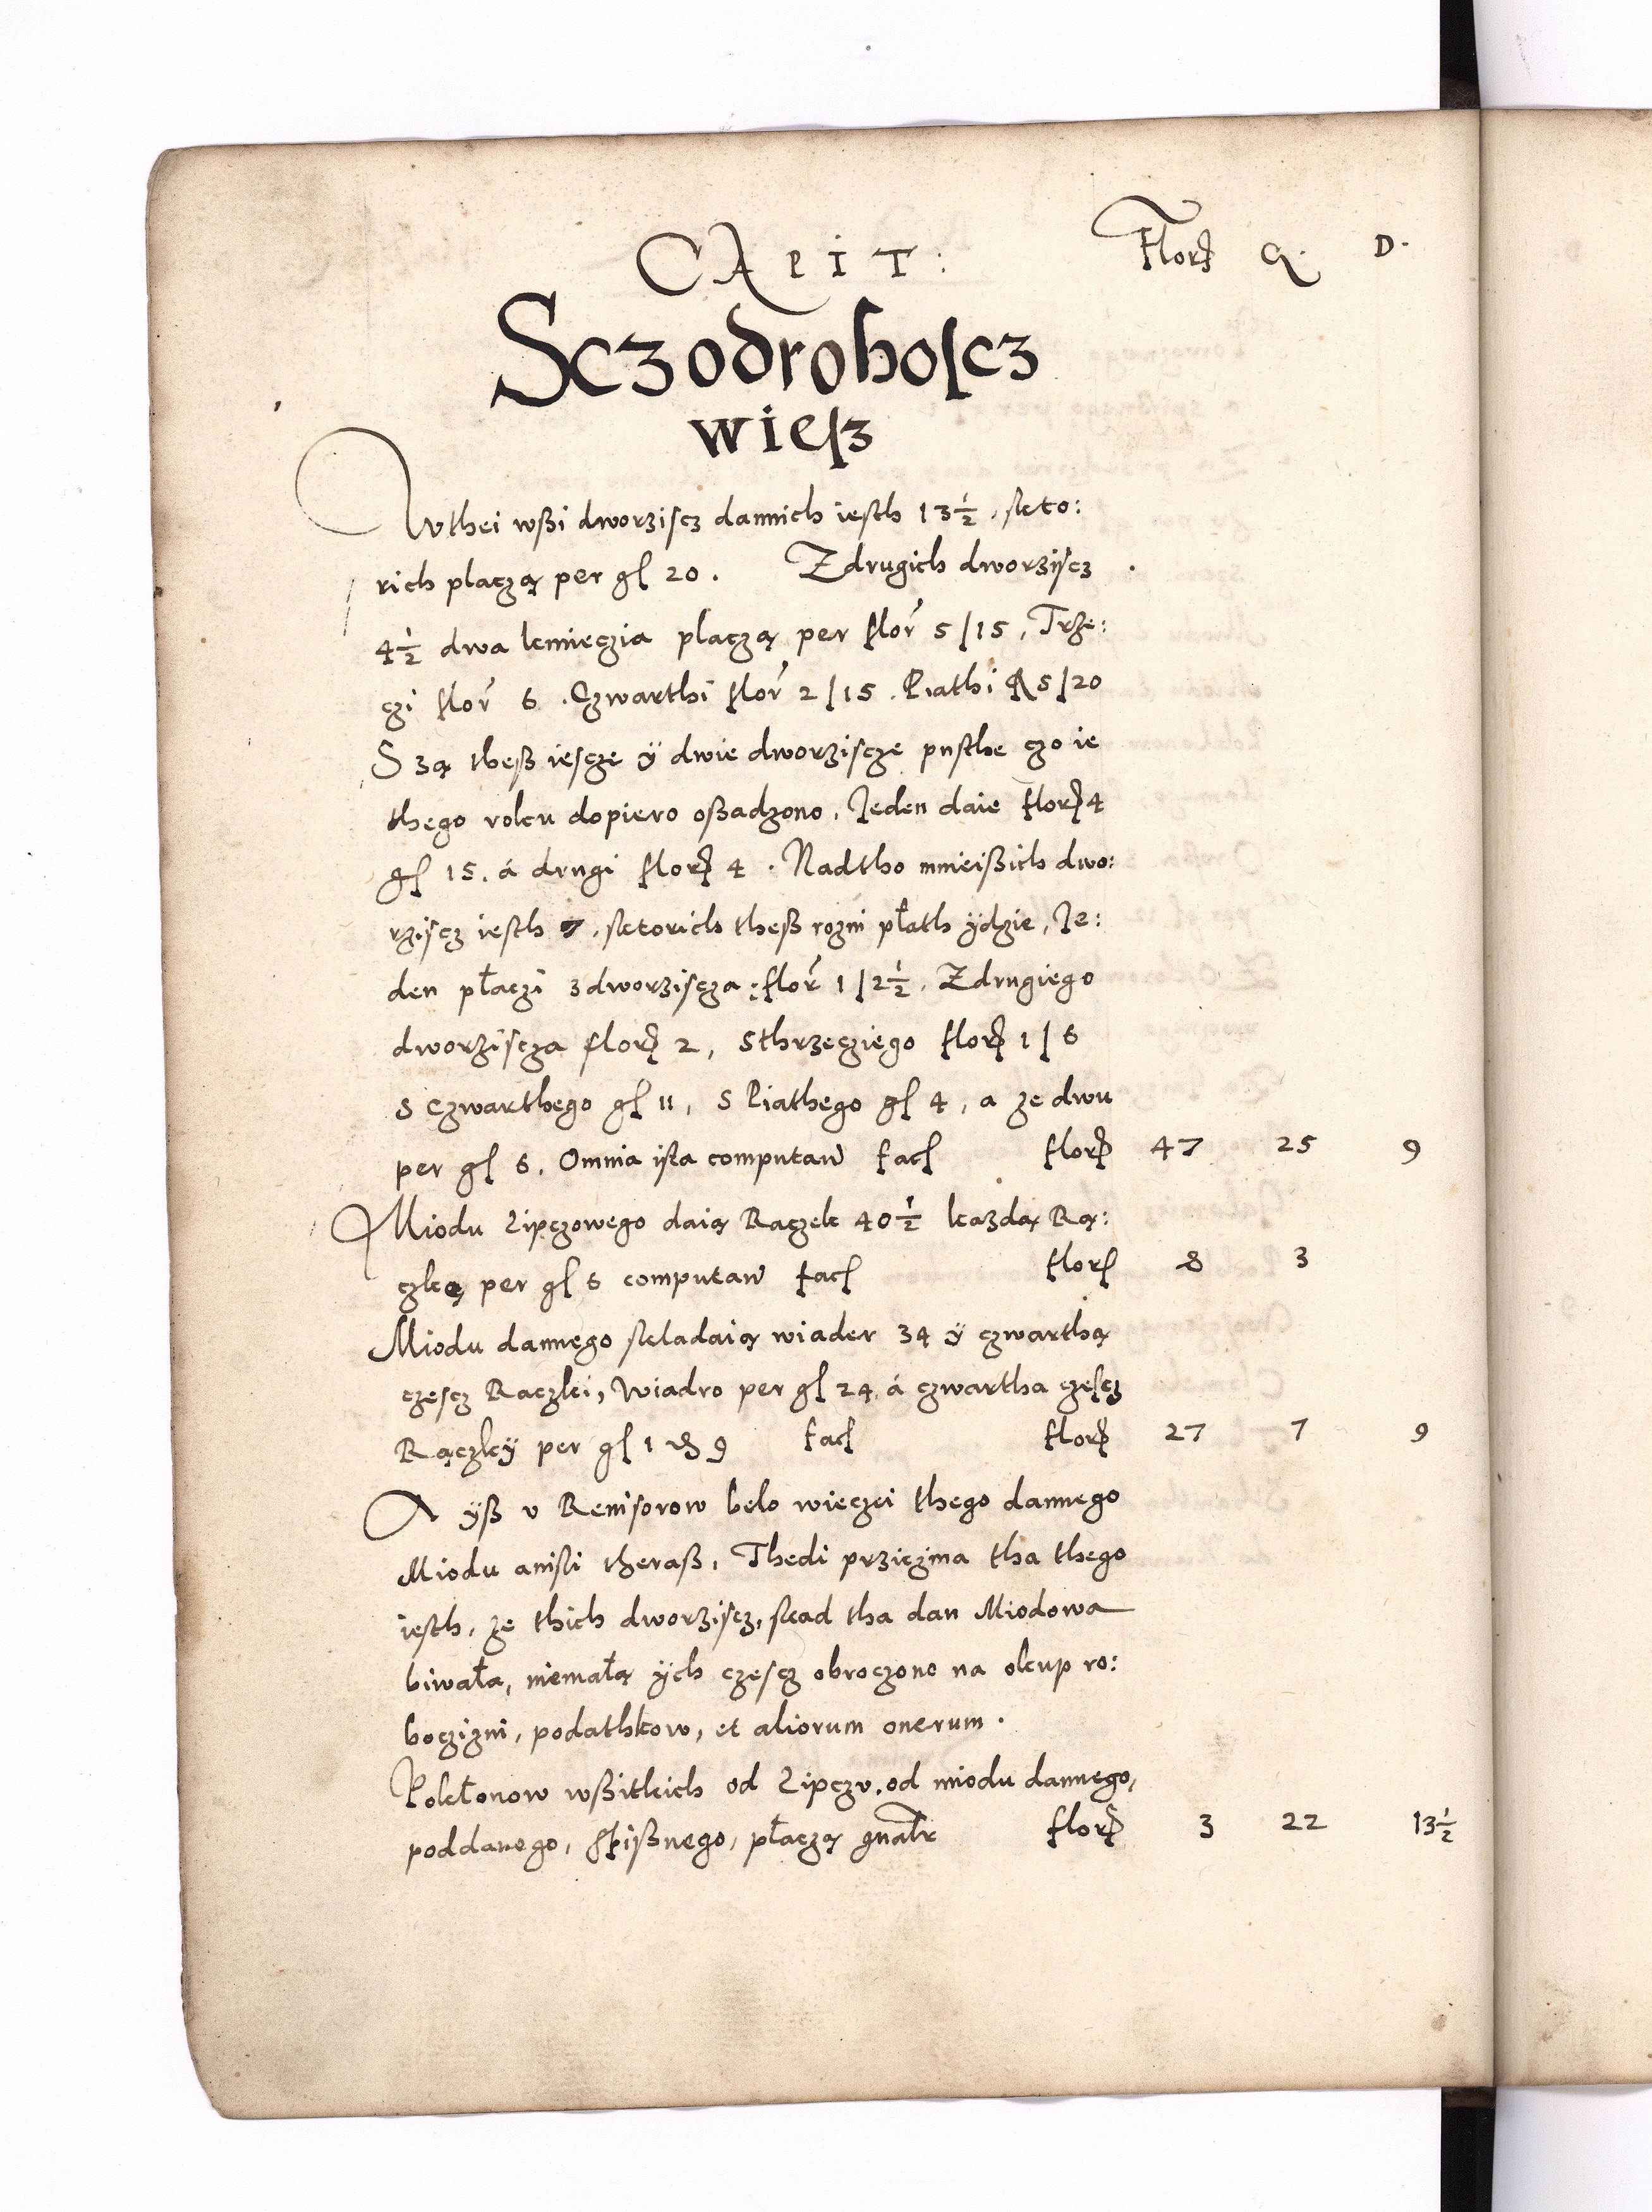 CAPIT: Flor G. D.
Sczodroboſcz
wieſz
W thei wßi dworziſcz dannich ieſth 13½, ſkto:
rich placzą per gſ 20. Z drugich dworziſcz
4½ dwa kmieczia placzą per flor 5/15, Trze:
czi flor 6. Czwarthi flor 2/15. Piathi 5/20
Szą theß ieſcze ÿ dwie dworziſcze puſthe czo ie
thego roku dopiero oßadzono, Jeden daie flor 4
gſ 15, á drugi flor 4. Nadtho mnieißich dwo:
rziſcz ieſth 7, ſktorich theß rozni płath ÿdzie, Je:
den płaczi z dworziſcza: flor 1/2½. Z drugiego
dworziſcza flor 2, S thrzecziego flor 1/6
S Czwarthego gſ 11, S Piathego gſ 4, a ze dwu
per gſ 6. Omnia iſta computan facſ flor 47 25 9
Miodu Lipczowego daią Raczek 40½ kazdą Rą:
czką per gſ 6 computan facſ flor 8 3
Miodu dannego ſkladaią wiader 34 ÿ czwarthą
czeſcz Raczki, Wiadro per gſ 24, á czwartha czeſcz
Rączkÿ per gſ 1 ₰ 9 facſ flor 27 7 9
A ÿß v Reviſorow belo wieczei thego dannego
Miodu aniſli theraß, Thedi prziczina tha thego
ieſth, ze thich dworziſcz, ſkad tha dan Miodowa
biwała, niemałą ÿch czeſcz obroczono na okup ro:
boczizni, podathkow, et aliorum onerum.
Pokłonow wßitkich od Lipczu, od miodu dannego,
poddanego, ſpißnego, płaczą gnałr flor 3 22 13½